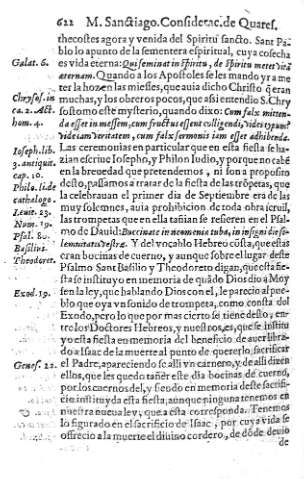 622 M. Sanctiago. Considerac. de Quares.
thecostes agora y venida del Spiritu sancto. Sant Pa-
blo lo apunto de la sementera espiritual, cuya cosecha
Galat. 6.
es vida eterna: Qui seminat in spiritu, de spiritu metet vitã
æternam. Quando a los Apostoles se les mando yr a me
ter la hoz en las miesses, que auia dicho Christo q̃ eran
Chrysos. in
ca. 2. act.
hom. 4.
muchas, y los obreros pocos, que assi entendio S. Chry
sostomo este mysterio, quando dixo: Cum falx mitten-
da esset in messem, cum fructus essent colligendi, vides typum?
vide iam veritatem, cum falx sermonis iam esset adhibenda.
Ioseph. lib.
3. antiquit.
cap. 10.
Las ceremonias en particular que en esta fiesta se ha-
zian escriue Iosepho, y Philon Iudio, y por que no cabẽ
en la breuedad que pretendemos, ni son a proposito
Philo. li. de
cathalogo.
Leuit. 23.
Num. 29.
Psal. 80.
Basilius.
Theodoret.
desto, passamos a tratar de la fiesta de las trõpetas, que
la celebrauan el primer dia de Septiembre era de las
muy solemnes, auia prohibicion de toda obra seruil,
las trompetas que en ella tañian se refieren en el Psal-
mo de Dauid: Buccinate in neomenia tuba, in insigni die so-
lemnitatis vestræ. Y del vocablo Hebreo cõsta, que estas
eran bocinas de cuerno, y aunque sobre el lugar deste
Psalmo Sant Basilio y Theodoreto digan, que esta fie-
sta se instituyo en memoria de quãdo Dios dio a Moy
Exod. 19.
sen la ley, que hablando Dios con el, le parecio al pue-
blo que oya vn sonido de trompeta, como consta del
Exodo, pero lo que por mas cierto se tiene desto, en-
tre los Doctores Hebreos, y nuestros, es, que se institu
yo esta fiesta en memoria del beneficio de auer libra-
do a Isaac de la muerte al punto de quererlo sacrificar
Genes. 22.
el Padre, apareciendose alli vn carnero, y de alli dizen
ellos, que les quedo tañer este dia bocinas de cuerno,
por los cuernos del, y siendo en memoria deste sacrifi-
cio instituyda esta fiesta, aunque ninguna tenemos en
nuestra nueua ley, que a esta corresponda. Tenemos
lo figurado en el sacrificio de Isaac, por cuya vida se
offrecio a la muerte el diuino cordero, de dõde deuio
de